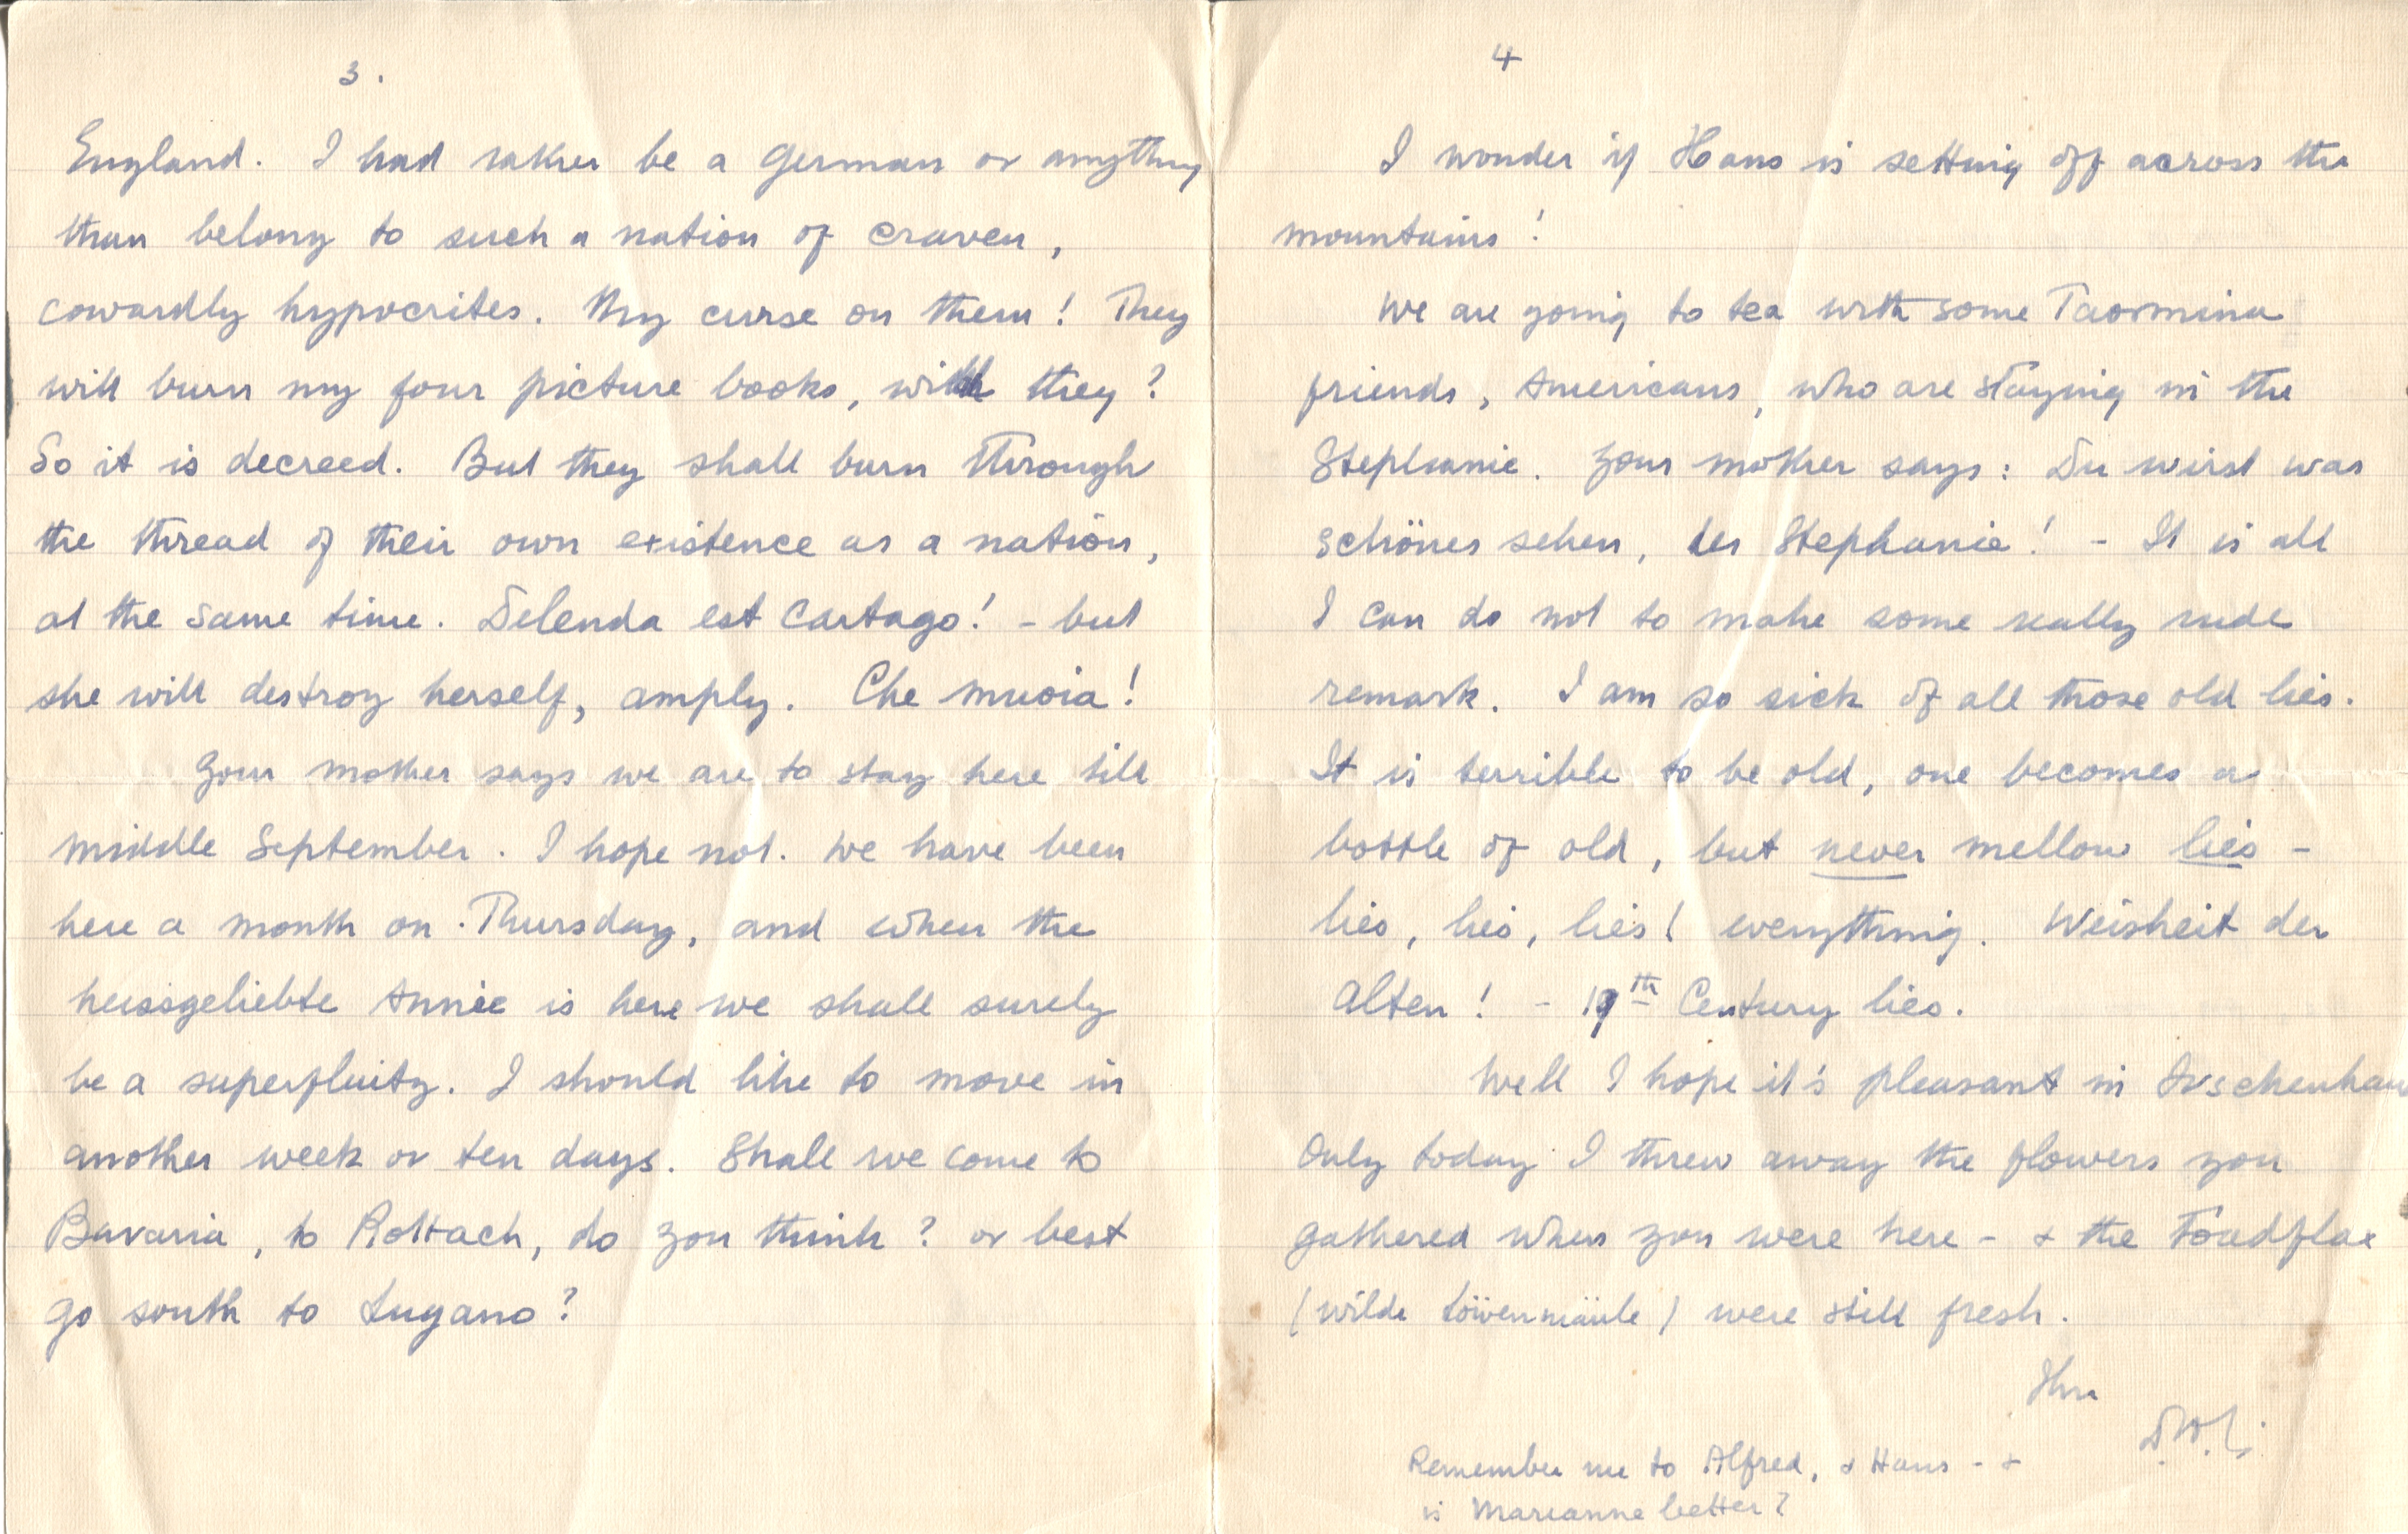 3.
England. I had rather be a German or anything
than belong to such a nation of craven,
cowardly hypocrites. My curse on them! They
will burn my four picture books, will they?
So it is decreed. But they shall burn through
the thread of their own existence as a nation,
at the same time. Delenda est Cartago! - but
she will destroy herself, amply. Che muoia!
Your mother says we are to stay here till
middle September. I hope not. We have been
here a month on Thursday, and when the
heissgeliebte Annie is here we shall surely
be a superfluity. I should like to move in
another week or ten days. Shall we come to
Bavaria, to Rottach, do you think? or best
go south to Lugano?
4
I wonder if Hans is setting off across the
mountains!
We are going to tea with some Taormina
friends, Americans, who are staying in the
Stephanie. Your mother says: Du wirst was
schönes sehen, der Stephanie! - It is all
I can do not to make some really rude
remark. I am so sick of all those old lies.
It is terrible to be old, one becomes a
bottle of old, but never mellow lies -
lies, lies, lies! everything. Weisheit der
Alten! - 19th Century lies.
Well I hope it's pleasant in Irschenhaus
Only today I threw away the flowers you
gathered when you were here - & the Toadflax
(wilde Löwenmäule) were still fresh.
Ihr
D.H.L.
Remember me to Alfred, & Hans - &
is Marianne better?